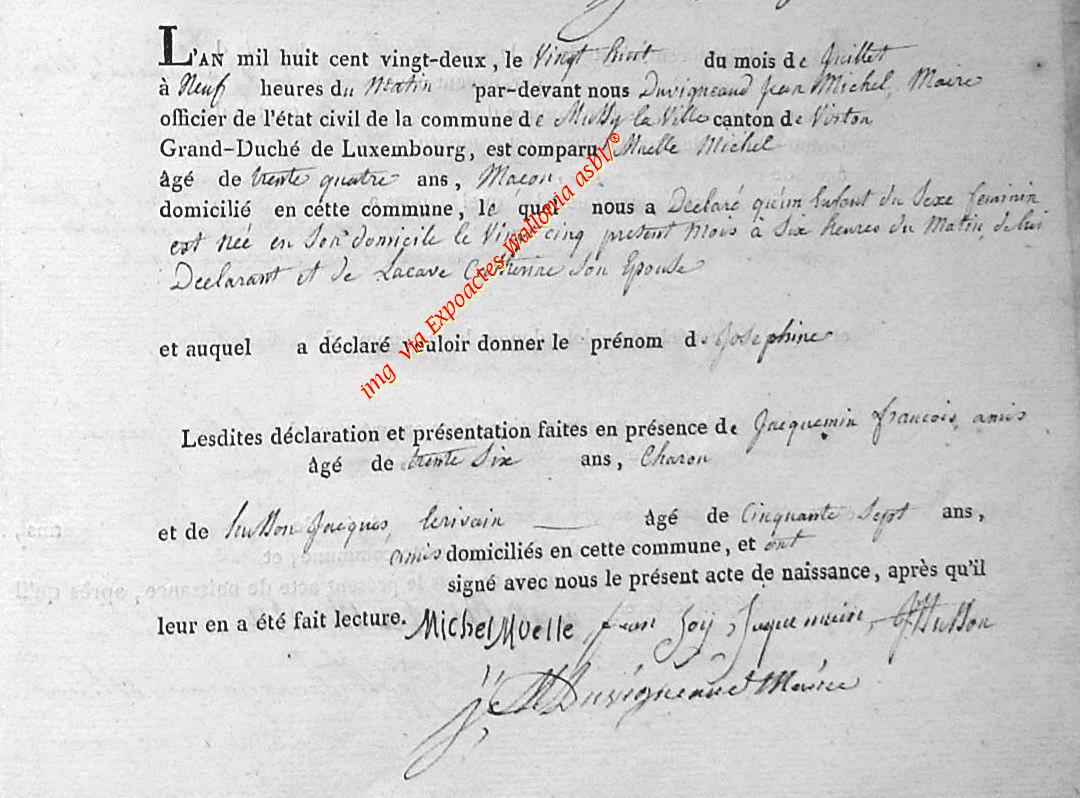 L'AN mil huit cent vingt-deux, le Vingt huit du mois de Juillet
à Neuf heures du Matin par-devant nous Duvigneaud Jean Michel, Maire
officier de l'état civil de la commune de Mussy la Ville canton de Virton
Grand-Duché de Luxembourg, est comparu Muelle Michel
âgé de trente quatre ans, Macon,
domicilié en cette commune, le quel nous a Declaré qu'un Enfant du Sexe feminin
est née en Son domicile le Vingt cinq present Mois à Six heures du Matin, de lui
Declarant et de Lacave Catherine Son Epouse
et auquel a déclaré vouloir donner le prénom de Josephine
Lesdites déclaration et présentation faites en présence de Jacquemin francois, amis
âgé de trente Six ans, Charon
et de husson Jacques, Ecrivain âgé de Cinquante Sept ans,
amis domiciliés en cette commune, et ont
signé avec nous le présent acte de naissance, après qu'il
leur en a été fait lecture. Michel Muelle fran Joy Jaquemin, JHusson
JM Duvigneaud Maire
img via Expoactes-Wallonia asbl/®